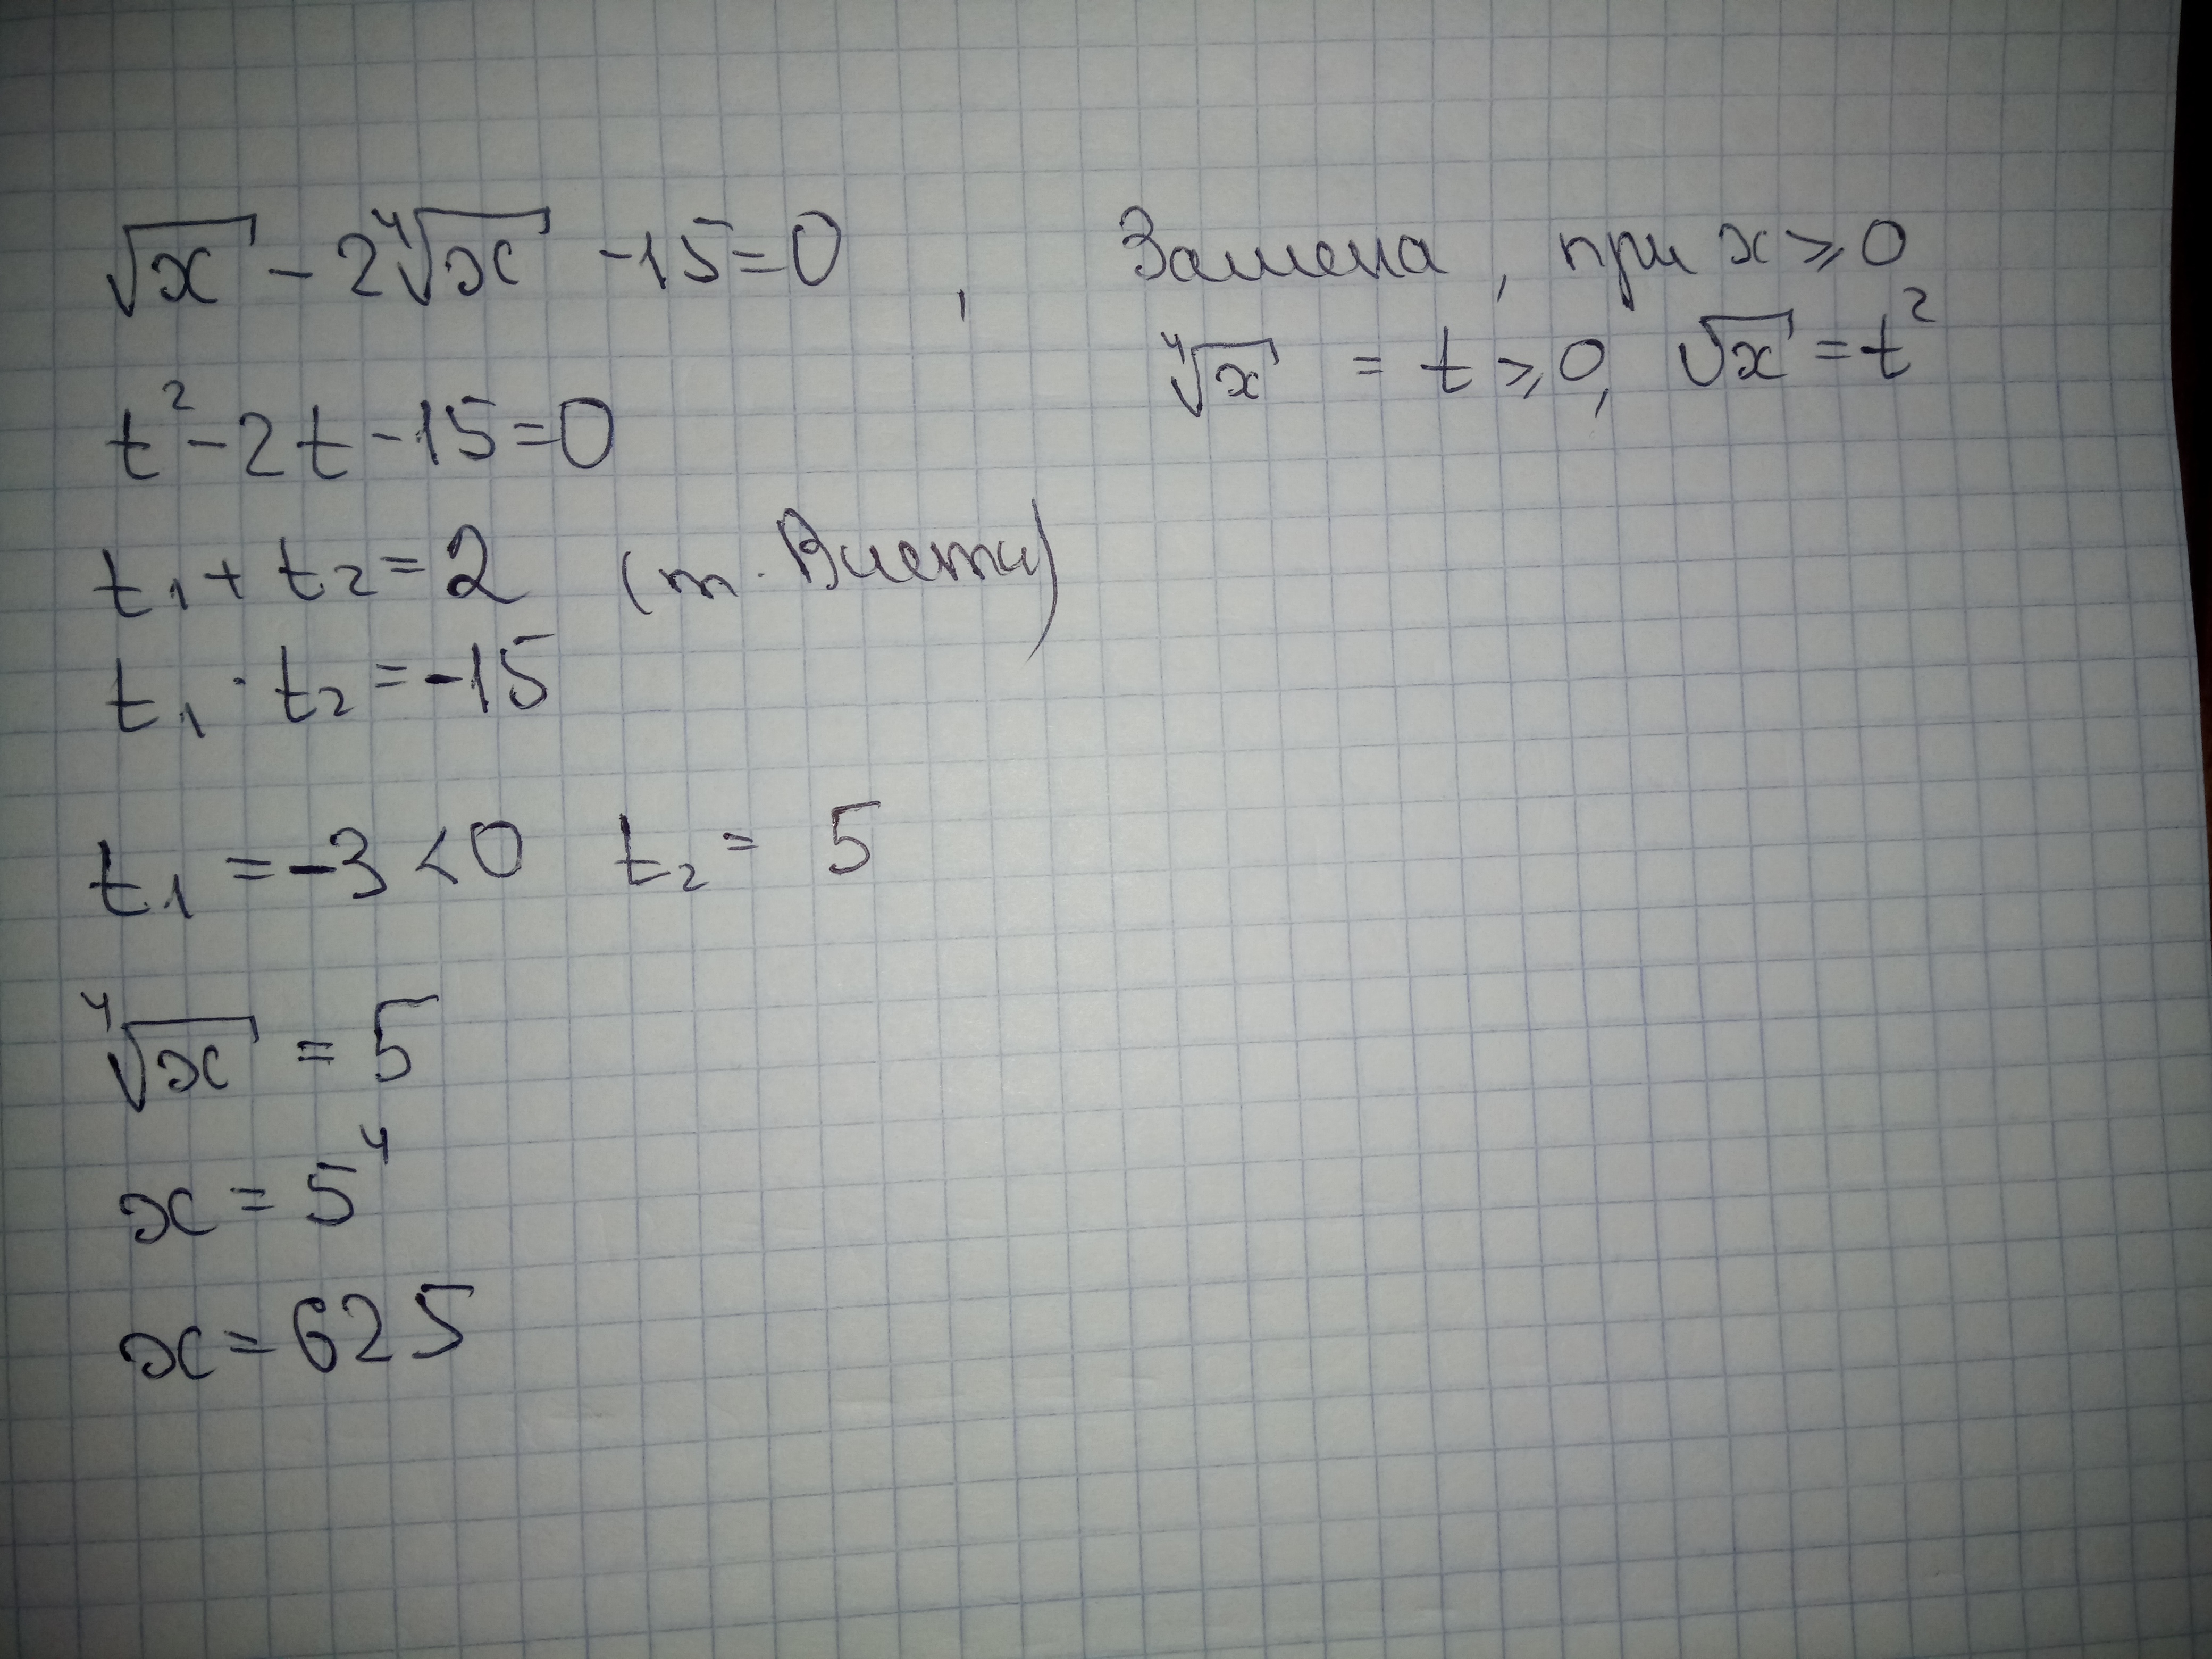 √x - 2⁴√x - 15 = 0 , Замена, при x ≥ 0
⁴√x = t ≥ 0, √x = t²
t² - 2t - 15 = 0
t₁ + t₂ = 2 (т. Виета)
t₁ · t₂ = -15
t₁ = -3 < 0 t₂ = 5
⁴√x = 5
x = 5⁴
x = 625